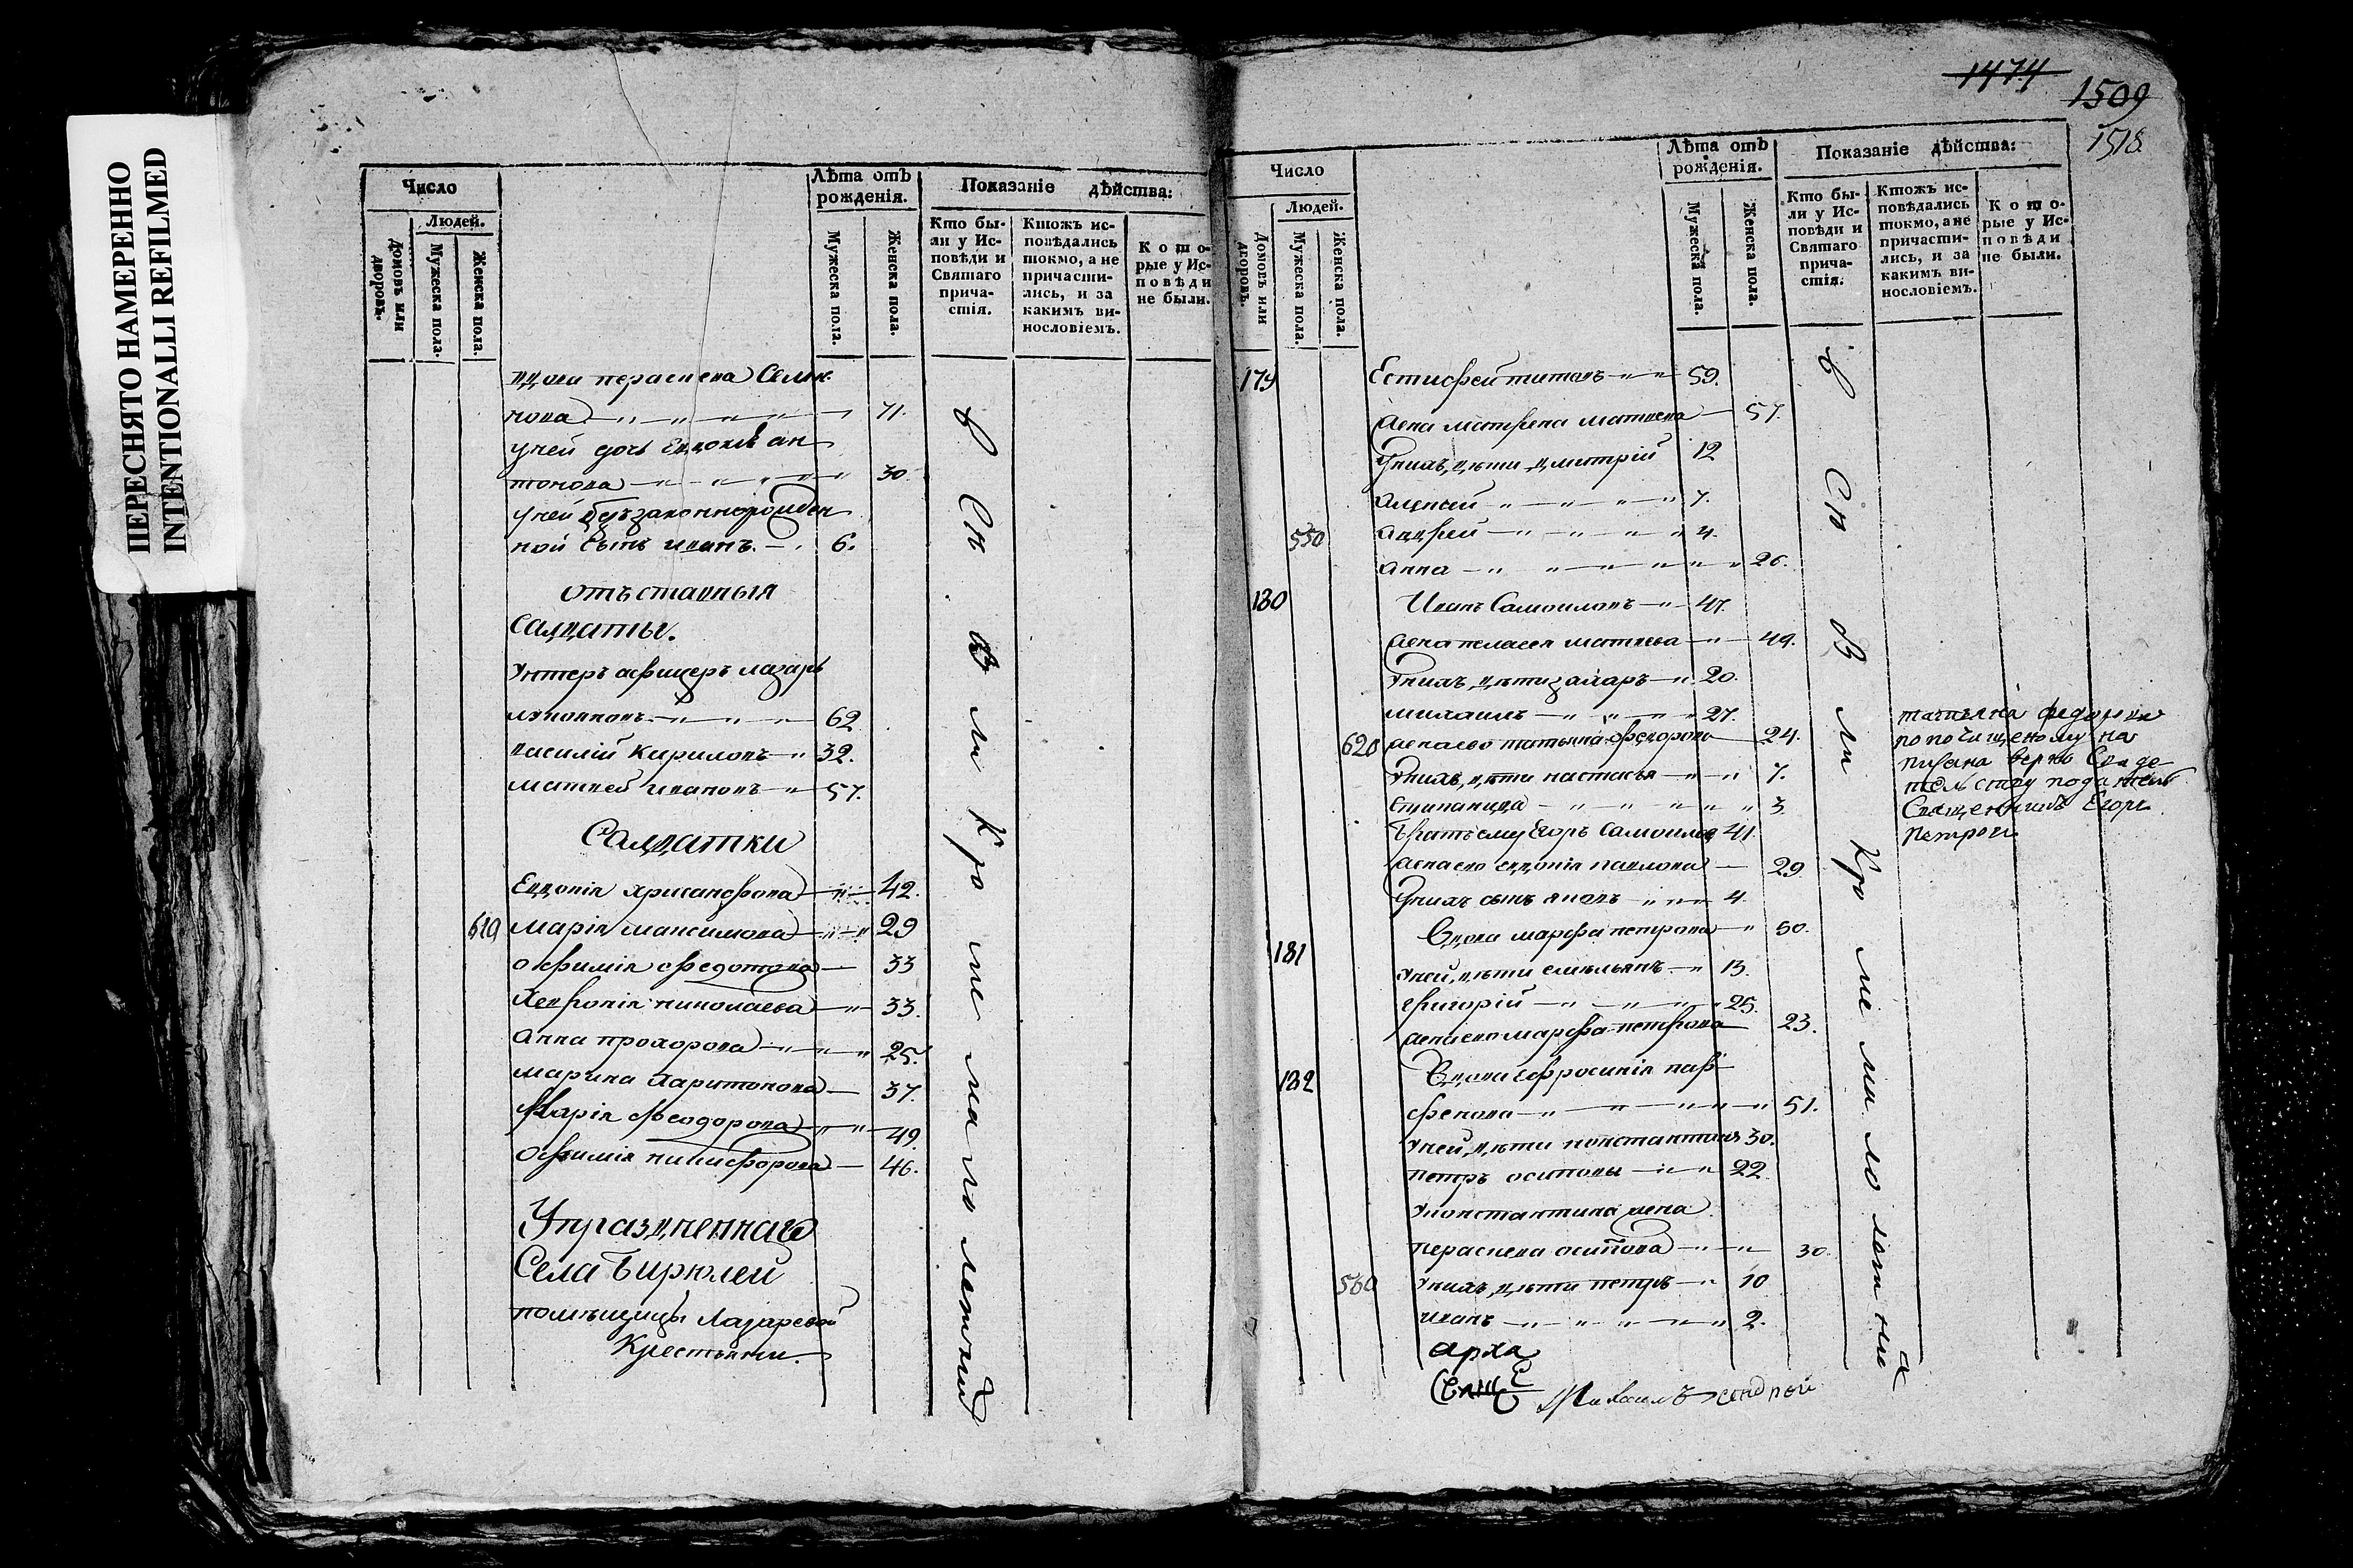 ПЕРЕСНЯТО НАМЕРЕННО
INTENTIONALLI REFILMED
Число
Людей.
Домовъ или дворовъ.
Мужеска пола.
Женска пола.
Лѣта отъ рожденія.
Мужеска пола.
Женска пола.
Показаніе дѣйства:
Кто были у Исповѣди и Святаго причастія.
Ктожъ исповѣдались токмо, а не причастились, и за какимъ винословіемъ.
Которые у Исповѣди не были.
вдова пераскева Семи
нова 71.
уней дочь Евдокия ан
тонова 30
уней безъзаконнорожден
ной сынъ иванъ. 6.
отъставныя
Салдаты.
Унтеръ афицеръ лазарь
62
василій Кириловъ 32.
матвей ивановъ 57.
Салдатки
Евдокія хрисанфова 42.
619 марія максимова 29
офимія федотова 33
николаева 33.
Анна прохорова 25.
марина харитонова 37.
Марія феодорова 49.
Офимія никифорова 46.
Упраздненнаго
Села Бирюлей
помѣщицы Лазаревой
Крестьяни.
всѣ были кроме малолетних
1474
1509
1518
Число
Людей.
Домовъ или дворовъ.
Мужеска пола.
Женска пола.
Лѣта отъ рожденія.
Мужеска пола.
Женска пола.
Показаніе дѣйства:
Кто были у Исповѣди и Святаго причастія.
Ктожъ исповѣдались токмо, а не причастились, и за какимъ винословіемъ.
Которые у Исповѣди не были.
179 Естифей титовъ 59.
жена матрена матвева 57.
Унихъ дѣти дмитрій 12
алексей 7.
550 андрей 4.
анна 26.
180 Иванъ Самоиловъ 47.
жена пелагея матвева 49.
Унихъ дѣти захаръ 20.
михаилъ 27.
620 жена ево татьяна федорова 24.
Унихъ дѣти настасья 7.
степанида 3.
Братъ ему Егоръ Самоилов 41.
жена ево евдокія павлова 29.
Унихъ сынъ яковъ 4.
181 Вдова марфа петрова 50.
Уней дѣти емельянъ 13.
григорій 25.
жена ево марфа петрова 23.
182 Вдова Ефросинія пар
фенова 51.
Уней дѣти константинъ 30.
петръ осиповы 22.
Уконстантина жена
пераскева осипова 30.
560 Унихъ дѣти петръ 10
иванъ 2.
всѣ были кроме малолетних
татьяна федорова
по почищеному на
писана верно Свиде
Священникъ Егоръ
Петровъ
арха
Михаилъ